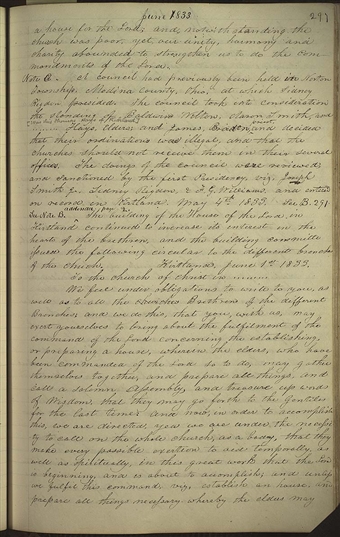 June 1833.
297
a house for the Lord, and, notwithstanding the
church was poor, yet our unity, harmony and
charity abounded to strengthen us to do the com-
mandments of the Lord.
Note C. A council had previously been held in Norton
Township, Medina County, Ohio, at which Sidney
Rigdon presided. The council took into consideration
the standing Baldwin Welton, Aaron Smith, and
Hayes, Elders and James, and decided
that their ordinations was illegal, and that the
churches should not receive them in their several
offices. The doings of the council were reviewed,
and sanctioned by the first Presidency, viz. Joseph
Smith Jr. Sidney Rigdon, & F. G. Williams, and entered
on record in Kirtland, May 4th 1833. See B. 291
See Note B. addenda, page 2.
The building of the House of the Lord, in
Kirtland continued to increase in interest in the
hearts of the brethren, and the building committee
issued the following circular to the different branches
of the Church, Kirtland, June 1st 1833.
To the church of Christ in
We feel under obligations to write to you, as
well as to all the Brethren of the different
branches and we do this, that you, with us, may
exert yourselves to bring about the fulfilment of the
command of the Lord concerning the establishing,
or preparing a house, wherein the elders, who have
been commanded of the Lord so to do, may gather
themselves together, and prepare all things, and
call a solemn Assembly, and treasure up words
of Wisdom, that they may go forth to the Gentiles
for the last time: and now, in order to accomplish
this, we are directed, yea we are under the necessi-
ty to call on the whole church, as a body, that they
make every possible exertion to aid temporally, as
well as spiritually, in this great work that the Lord
is beginning, and is about to accomplish, and unless
we fulfil this command, viz. establish an house, and
prepare all things necessary whereby the elders may